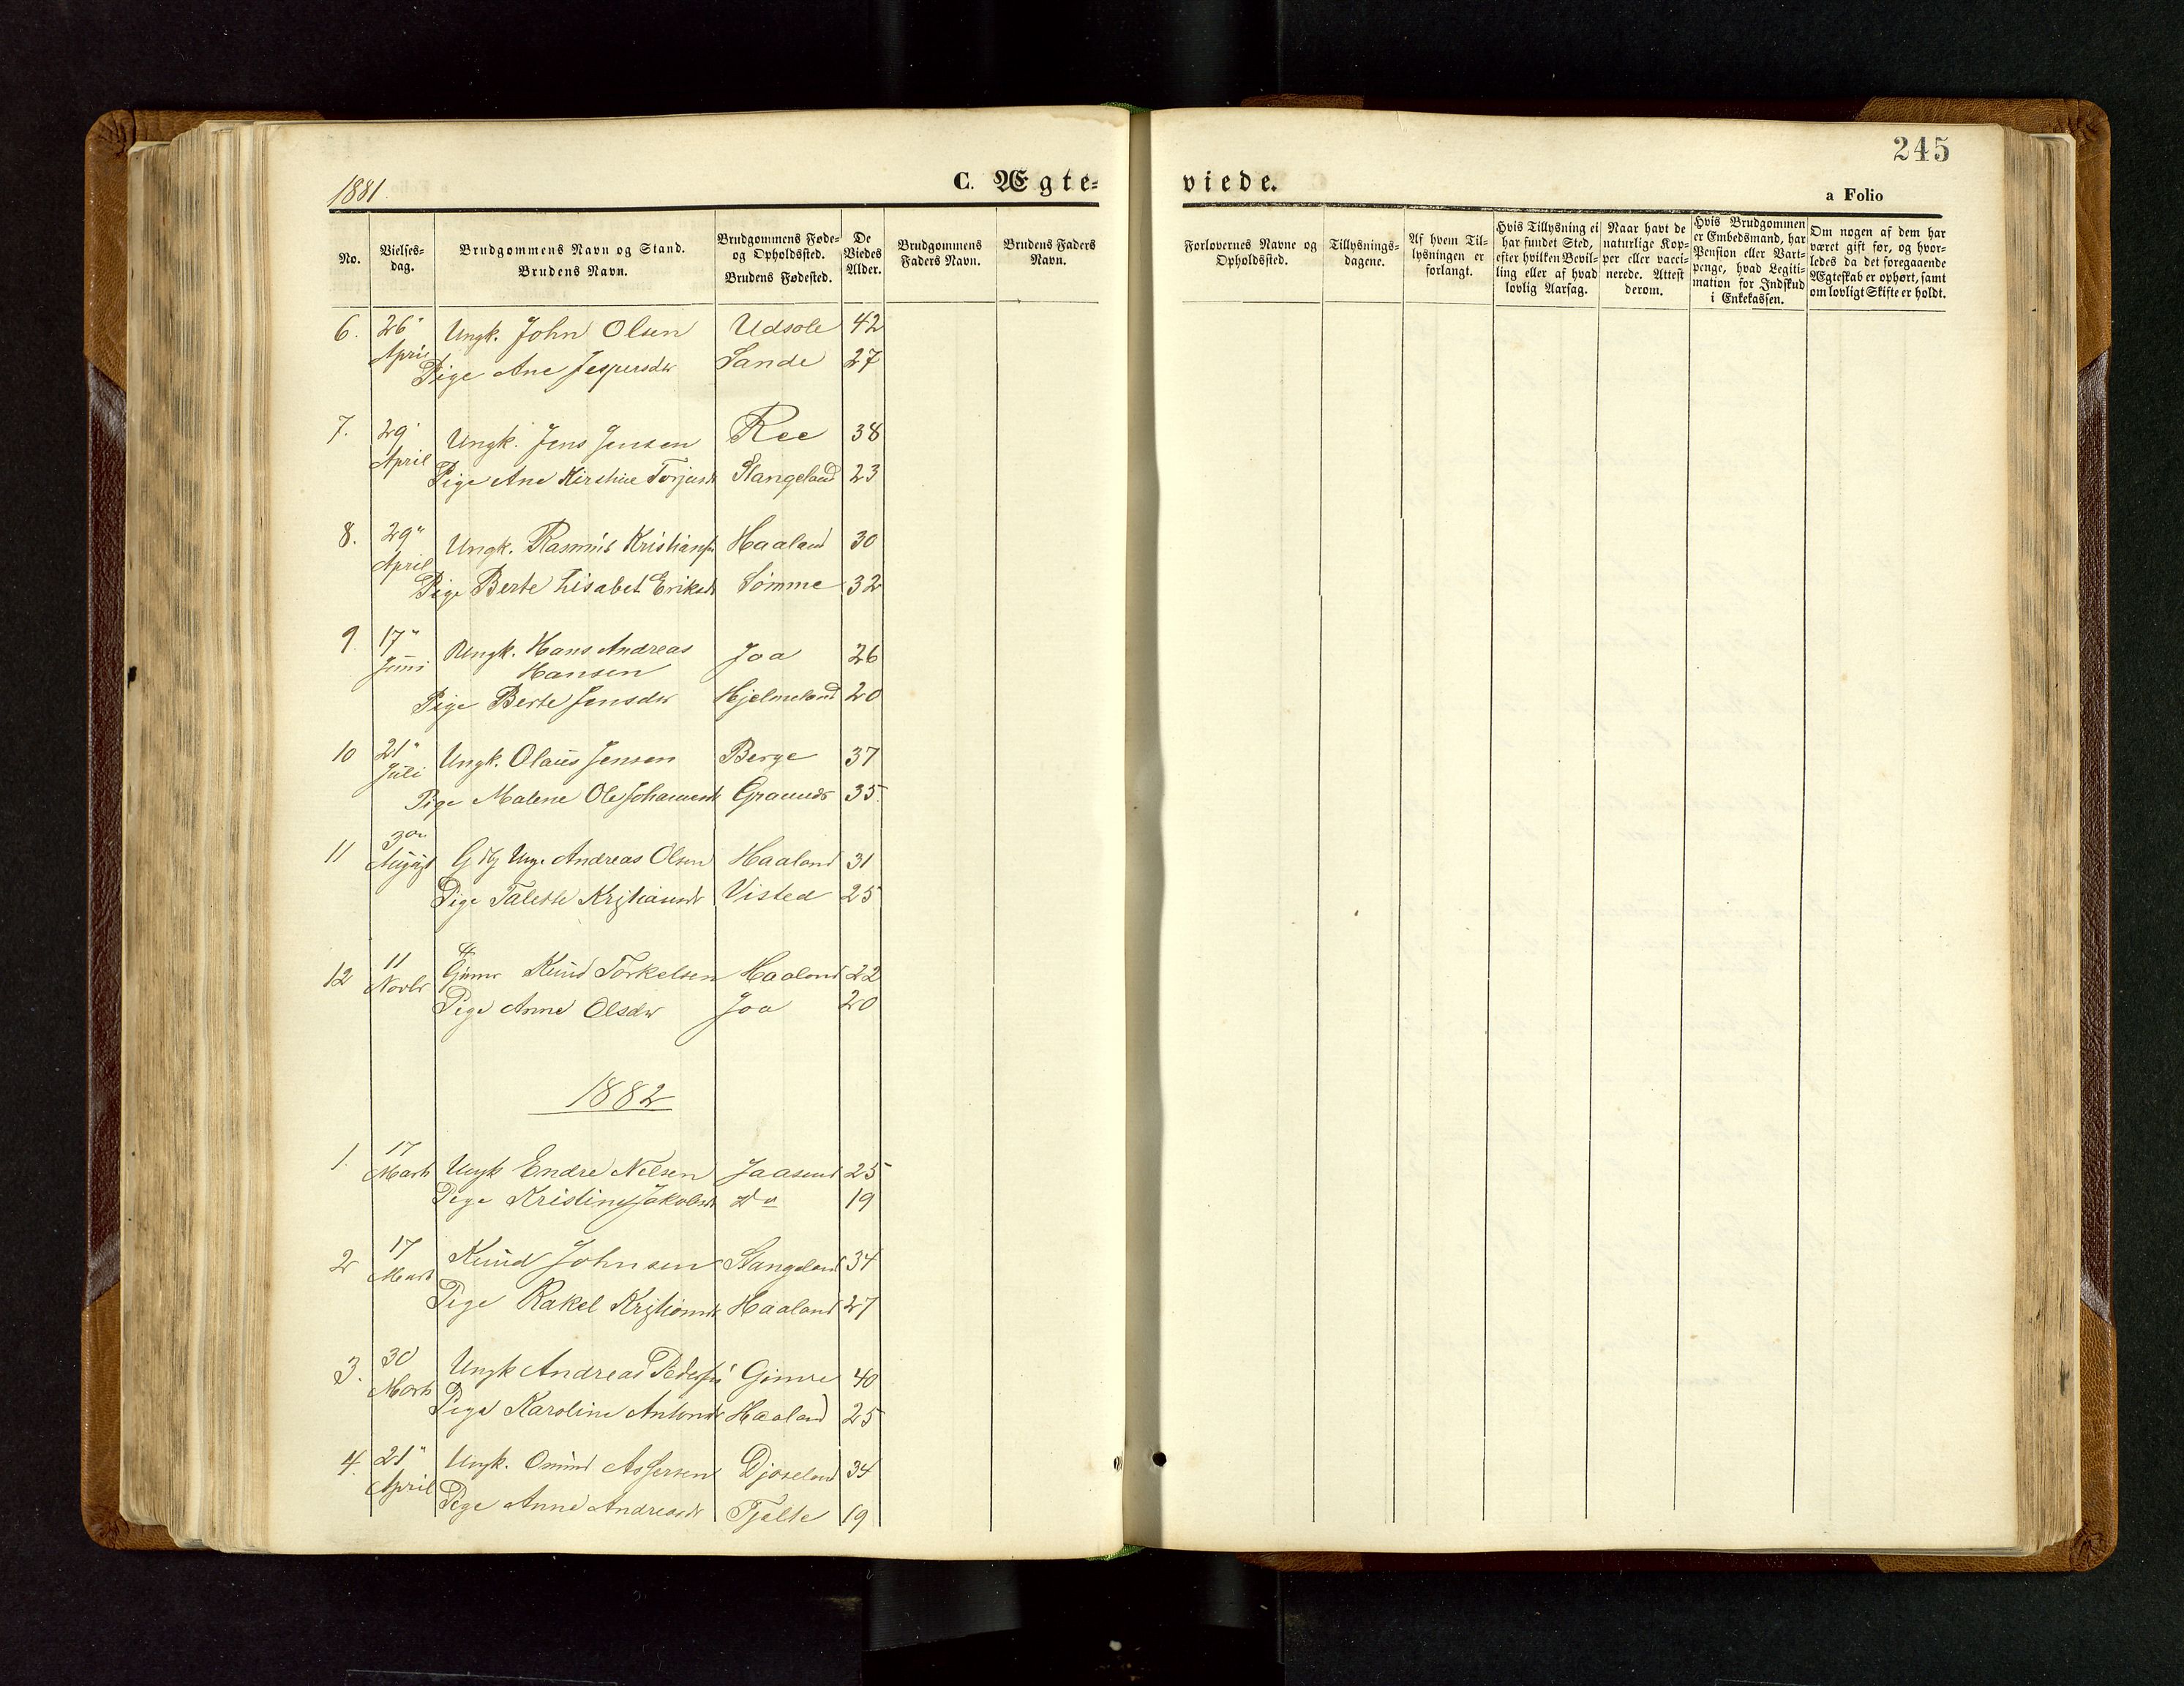 245
1881.
C. Ægte-
viede.
a Folio
No.
Vielses-
dag.
Brudgommens Navn og Stand.
Brudens Navn.
Brudgommens Føde-
og Opholdssted.
Brudens Fødested.
De
Viedes
Alder.
Brudgommens
Faders Navn.
Brudens Faders
Navn.
Forlovernes Navne og
Opholdssted.
Tillysnings-
dagene.
Af hvem Til-
lysningen er
forlangt.
Hvis Tillysning ei
har fundet Sted,
efter hvilken Bevil-
ling eller af hvad
lovlig Aarsag.
Naar havt de
naturlige Kop-
per eller vacci-
nerede. Attest
derom.
Hvis Brudgommen
er Embedsmand, har
Pension eller Vart-
penge, hvad Legiti-
mation for Indskud
i Enkekassen.
Om nogen af dem har
været gift før, og hvor-
ledes da det foregaaende
Ægteskab er ophørt, samt
om lovligt Skifte er holdt.
6. 26" April Ungk. John Olsen Udsole 42
Pige Ane Jespersdtr Sande 27
7. 29" April Ungk. Jens Jensen Ree 38
Pige Ane Kirstine Torjersdt Stangeland 23
8. 29" April Ungk. Rasmus Kristiansen Haaland 30
Pige Berte Lisabet Eriksdt Sömme 32
9. 17" Juni Ungk. Hans Andreas
Hansen Joa 26
Pige Berte Jensdtr Hjelmeland 20
10 21" Juli Ungk. Olaus Jensen Berge 37
Pige Malene Ole Johannesdt 35
11 August Andreas Olsen Haaland 31
Pige Talette Kristiansdt Visted 25
12 11 Novbr Knud Torkelsen Haaland 22
Pige Anne Olsdtr Joa 20
1882
1. 17 Marts Ungk Endre Nelsen Jaasund 25
Pige Kristine Jakobsdt Do 19
2 17 Marts Knud Johnsen Stangeland 34
Pige Rakel Kristiansdt Haaland 27
3. 30 Marts Ungk Andreas Pedersen Gimre 40
Pige Karoline Antonsdt Haaland 25
4. 21" April Ungk. Omund Assersen Djoseland 34
Pige Anne Andreasdt Tjelte 19